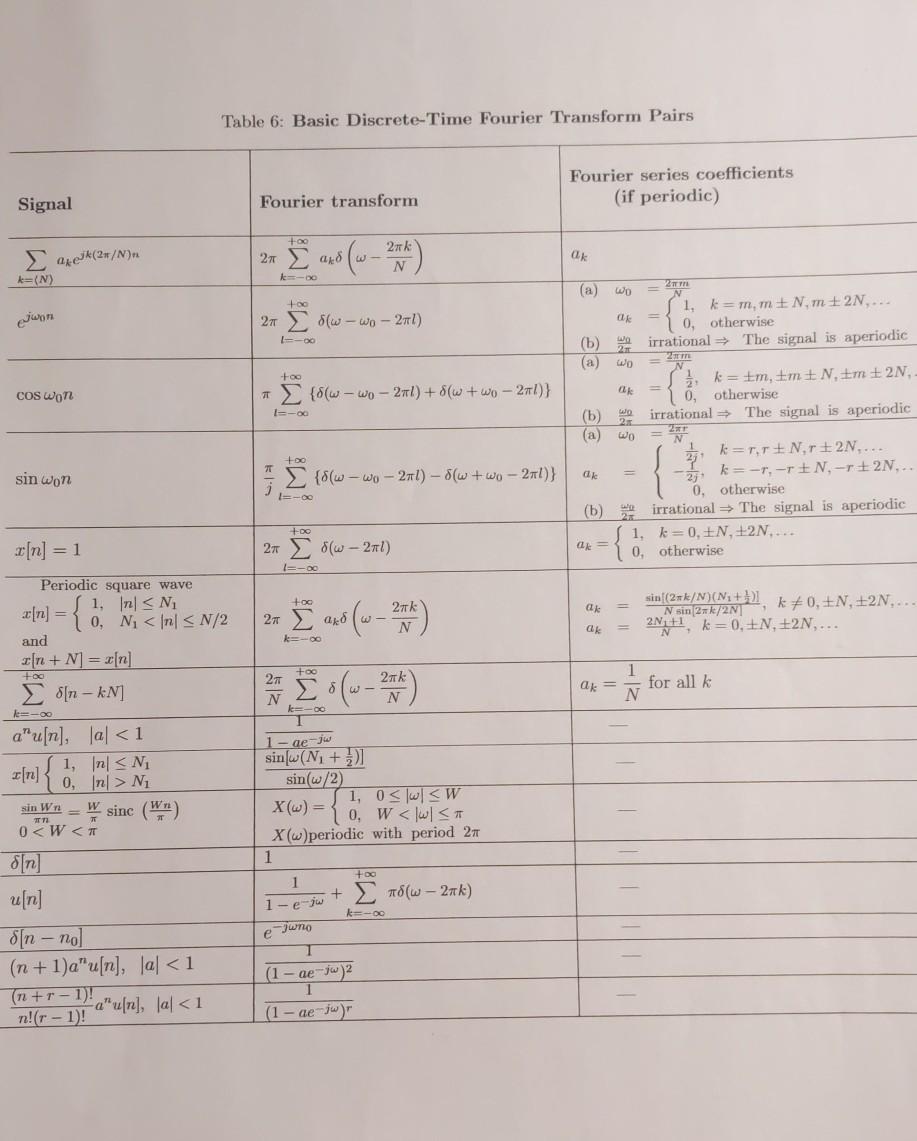 Table 6: Basic Discrete-Time Fourier Transform Pairs
Signal | Fourier transform | Fourier series coefficients (if periodic)
∑_{k=⟨N⟩} a_k e^{jk(2π/N)n} | 2π ∑_{k=−∞}^{+∞} a_k δ(ω − 2πk/N) | a_k
e^{jω₀n} | 2π ∑_{l=−∞}^{+∞} δ(ω − ω₀ − 2πl) | (a) ω₀ = 2πm/N
a_k = { 1, k = m, m ± N, m ± 2N, ...
0, otherwise
(b) ω₀/2π irrational ⇒ The signal is aperiodic
cos ω₀n | π ∑_{l=−∞}^{+∞} {δ(ω − ω₀ − 2πl) + δ(ω + ω₀ − 2πl)} | (a) ω₀ = 2πm/N
a_k = { 1/2, k = ±m, ±m ± N, ±m ± 2N, .
0, otherwise
(b) ω₀/2π irrational ⇒ The signal is aperiodic
sin ω₀n | π/j ∑_{l=−∞}^{+∞} {δ(ω − ω₀ − 2πl) − δ(ω + ω₀ − 2πl)} | (a) ω₀ = 2πr/N
a_k = { 1/2j, k = r, r ± N, r ± 2N, ...
−1/2j, k = −r, −r ± N, −r ± 2N, ..
0, otherwise
(b) ω₀/2π irrational ⇒ The signal is aperiodic
x[n] = 1 | 2π ∑_{l=−∞}^{+∞} δ(ω − 2πl) | a_k = { 1, k = 0, ±N, ±2N, ...
0, otherwise
Periodic square wave
x[n] = { 1, |n| ≤ N₁
0, N₁ < |n| ≤ N/2
and
x[n + N] = x[n] | 2π ∑_{k=−∞}^{+∞} a_k δ(ω − 2πk/N) | a_k = sin[(2πk/N)(N₁+1/2)] / N sin[2πk/2N], k ≠ 0, ±N, ±2N, ...
a_k = (2N₁+1)/N, k = 0, ±N, ±2N, ...
∑_{k=−∞}^{+∞} δ[n − kN] | 2π/N ∑_{k=−∞}^{+∞} δ(ω − 2πk/N) | a_k = 1/N for all k
aⁿu[n], |a| < 1 | 1/(1 − ae^{−jω}) | —
x[n] { 1, |n| ≤ N₁
0, |n| > N₁ | sin[ω(N₁ + 1/2)] / sin(ω/2) | —
sin Wn/πn = W/π sinc (Wn/π)
0 < W < π | X(ω) = { 1, 0 ≤ |ω| ≤ W
0, W < |ω| ≤ π
X(ω)periodic with period 2π | —
δ[n] | 1 | —
u[n] | 1/(1 − e^{−jω}) + ∑_{k=−∞}^{+∞} πδ(ω − 2πk) | —
δ[n − n₀] | e^{−jωn₀} | —
(n + 1)aⁿu[n], |a| < 1 | 1/(1 − ae^{−jω})² | —
(n + r − 1)!/n!(r − 1)! aⁿu[n], |a| < 1 | 1/(1 − ae^{−jω})^r | —